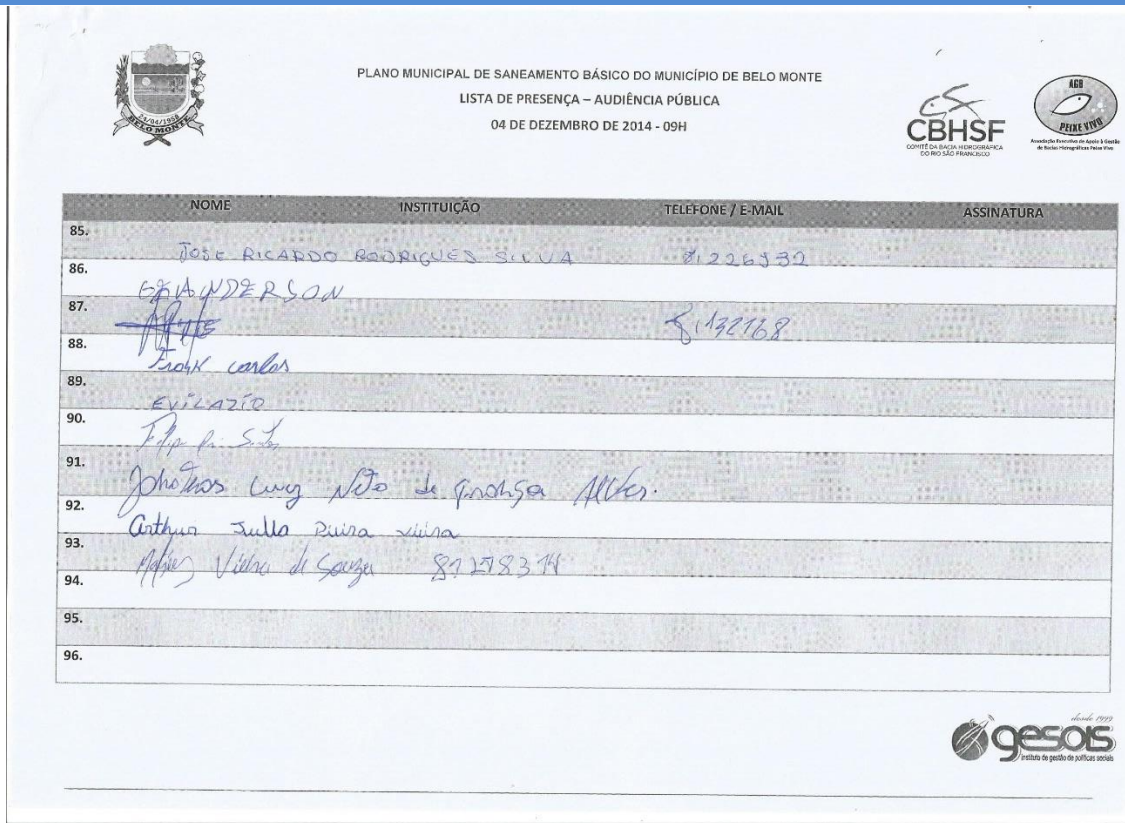 24/04/1958
BELO MONTE
PLANO MUNICIPAL DE SANEAMENTO BÁSICO DO MUNICÍPIO DE BELO MONTE
LISTA DE PRESENÇA – AUDIÊNCIA PÚBLICA
04 DE DEZEMBRO DE 2014 - 09H
CBHSF
COMITÊ DA BACIA HIDROGRÁFICA
DO RIO SÃO FRANCISCO
AGB
PEIXE VIVO
Associação Executiva de Apoio à Gestão
de Bacias Hidrográficas Peixe Vivo
NOME INSTITUIÇÃO TELEFONE / E-MAIL ASSINATURA
85. JOSE RICARDO RODRIGUES SILVA
86.
87.
88. Frank carlos
89. EVILAZIO
90.
91. Neto de Alves.
92. Arthur vieira
93. Vieira de Souza
94.
95.
96.
desde 1999
gesois
instituto de gestão de políticas sociais